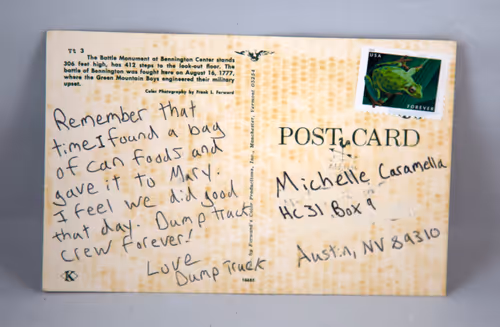 Tt 3
The Battle Monument at Bennington Center stands
306 feet high, has 412 steps to the look-out floor. The
battle of Bennington was fought here on August 16, 1777,
where the Green Mountain Boys engineered their military
upset.
Color Photography by Frank L. Forward
Remember that
time I found a bag
of can foods and
gave it to Mary.
I feel we did good
that day. Dump track
crew forever!
Love
Dump Truck
K
by Forward's Color Productions, Inc., Manchester, Vermont 05254
16685
USA
FOREVER
POST CARD
Michelle Caramella
HC 31 Box 9
Austin, NV 89310